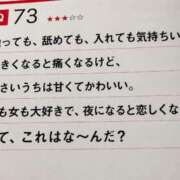 73 ★★★☆☆
っても、舐めても、入れても気持ちい
きくなると痛くなるけど、
さいうちは甘くてかわいい。
も女も大好きで、夜になると恋しくな
て、これはな〜んだ？